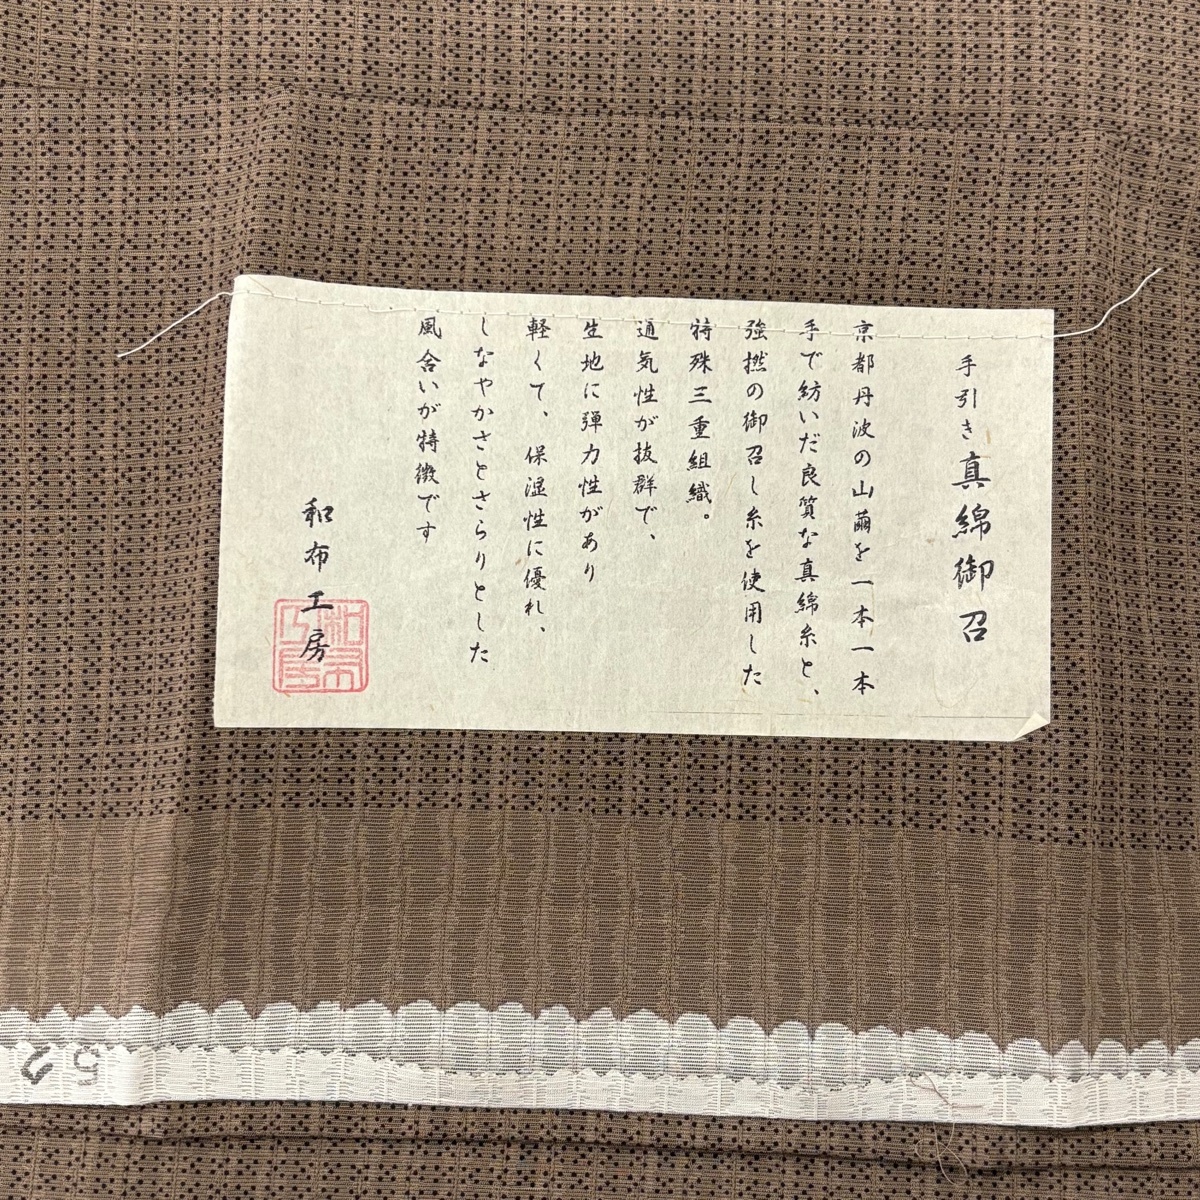 手引き真綿御召
京都丹波の山繭を一本一本
手で紡いだ良質な真綿糸と、
強撚の御召し糸を使用した
特殊三重組織。
通気性が抜群で、
生地に弾力性があり
軽くて、保湿性に優れ、
しなやかさとさらりとした
風合いが特徴です
和布工房
和布工房
52